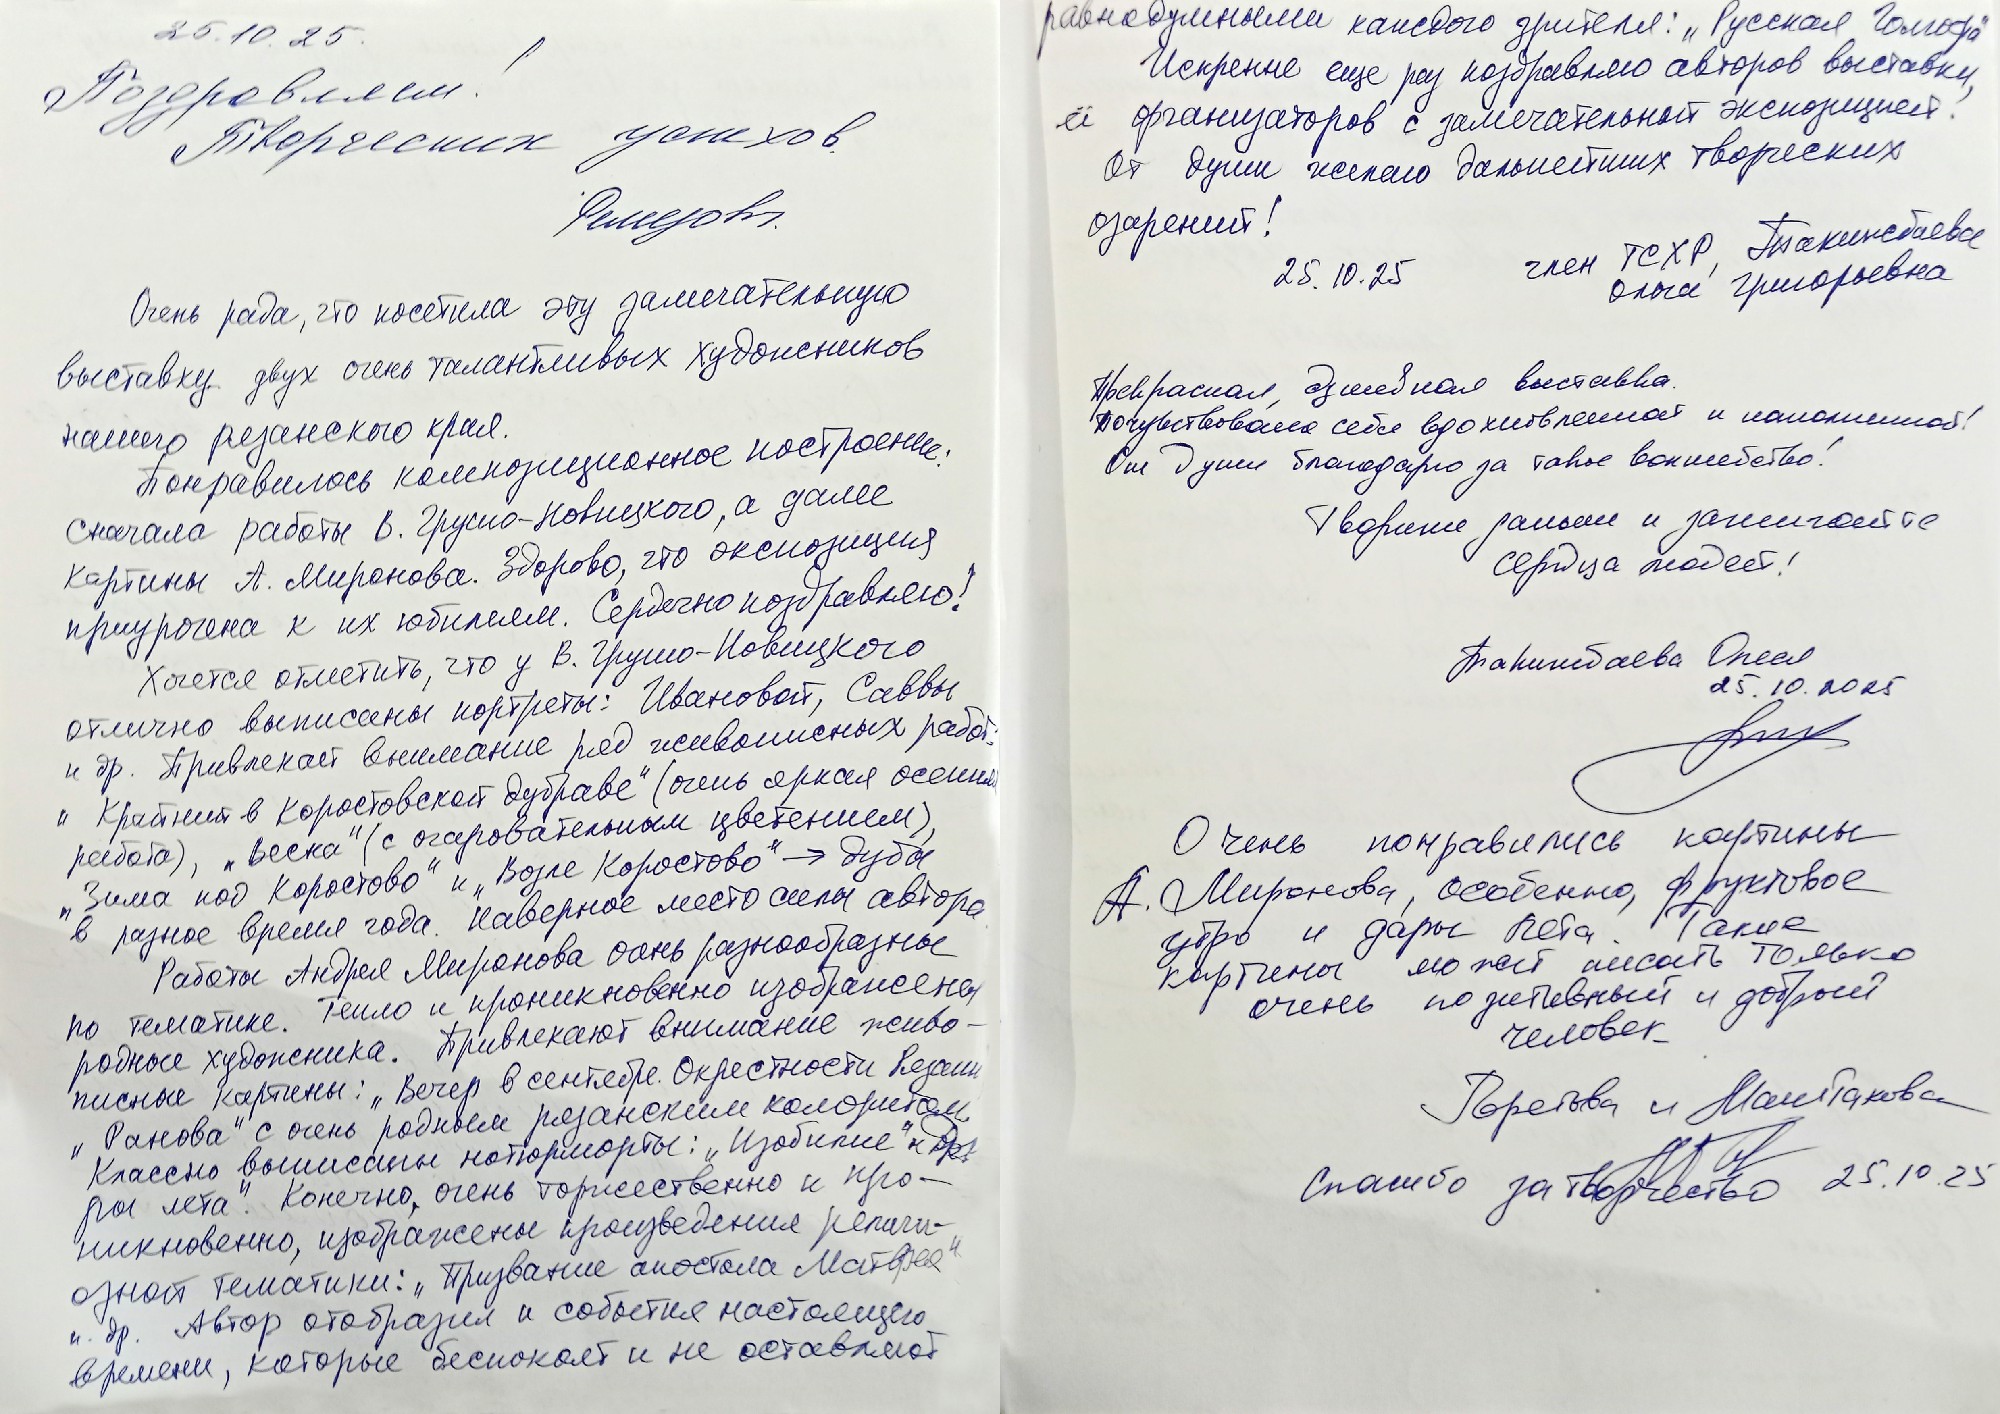 25.10.25.
Поздравляем!
Творческих успехов.
Очень рада, что посетила эту замечательную
выставку двух очень талантливых художников
нашего рязанского края.
Понравилось композиционное построение:
сначала работы В. Грушо-Новицкого, а далее
картины А. Миронова. Здорово, что экспозиция
приурочена к их юбилеям. Сердечно поздравляю!
Хочется отметить, что у В. Грушо-Новицкого
отлично выписаны портреты: Ивановой, Саввы
и др. Привлекает внимание ряд живописных работ:
„Крайний в Коростовской дубраве“ (очень яркая осенняя
работа), „Весна“ (с очаровательным цветением),
„Зима под Коростово“ и „Возле Коростово“ → дубы
в разное время года. Наверное место силы автора.
Работы Андрея Миронова очень разнообразные
по тематике. Тепло и проникновенно изображены
родные художника. Привлекают внимание живо-
писные картины: „Вечер в сентябре. Окрестности Рязани
„Ранова“ с очень родным рязанским колоритом.
Классно выписаны натюрморты: „Изобилие“ и „Да-
ры лета“. Конечно, очень торжественно и про-
никновенно, изображены произведения религи-
озной тематики: „Призвание апостола Матфея“
и др. Автор отобразил и события настоящего
времени, которые беспокоят и не оставляют
равнодушными каждого зрителя: „Русская Голгофа“
Искренне еще раз поздравляю авторов выставки,
её организаторов с замечательной экспозицией!
От души желаю дальнейших творческих
озарений!
25.10.25 член ТСХР, Такижбаева
Ольга Григорьевна
Прекрасная, душевная выставка.
Почувствовала себя вдохновленной и наполненной!
От души благодарю за такое волшебство!
Творите дальше и зажигайте
сердца людей!
Такижбаева Олеся
25.10.2025
Очень понравились картины
А. Миронова, особенно, фруктовое
утро и дары лета. Такие
картины может писать только
очень позитивный и добрый
человек
и Маштакова
Спасибо за творчество 25.10.25